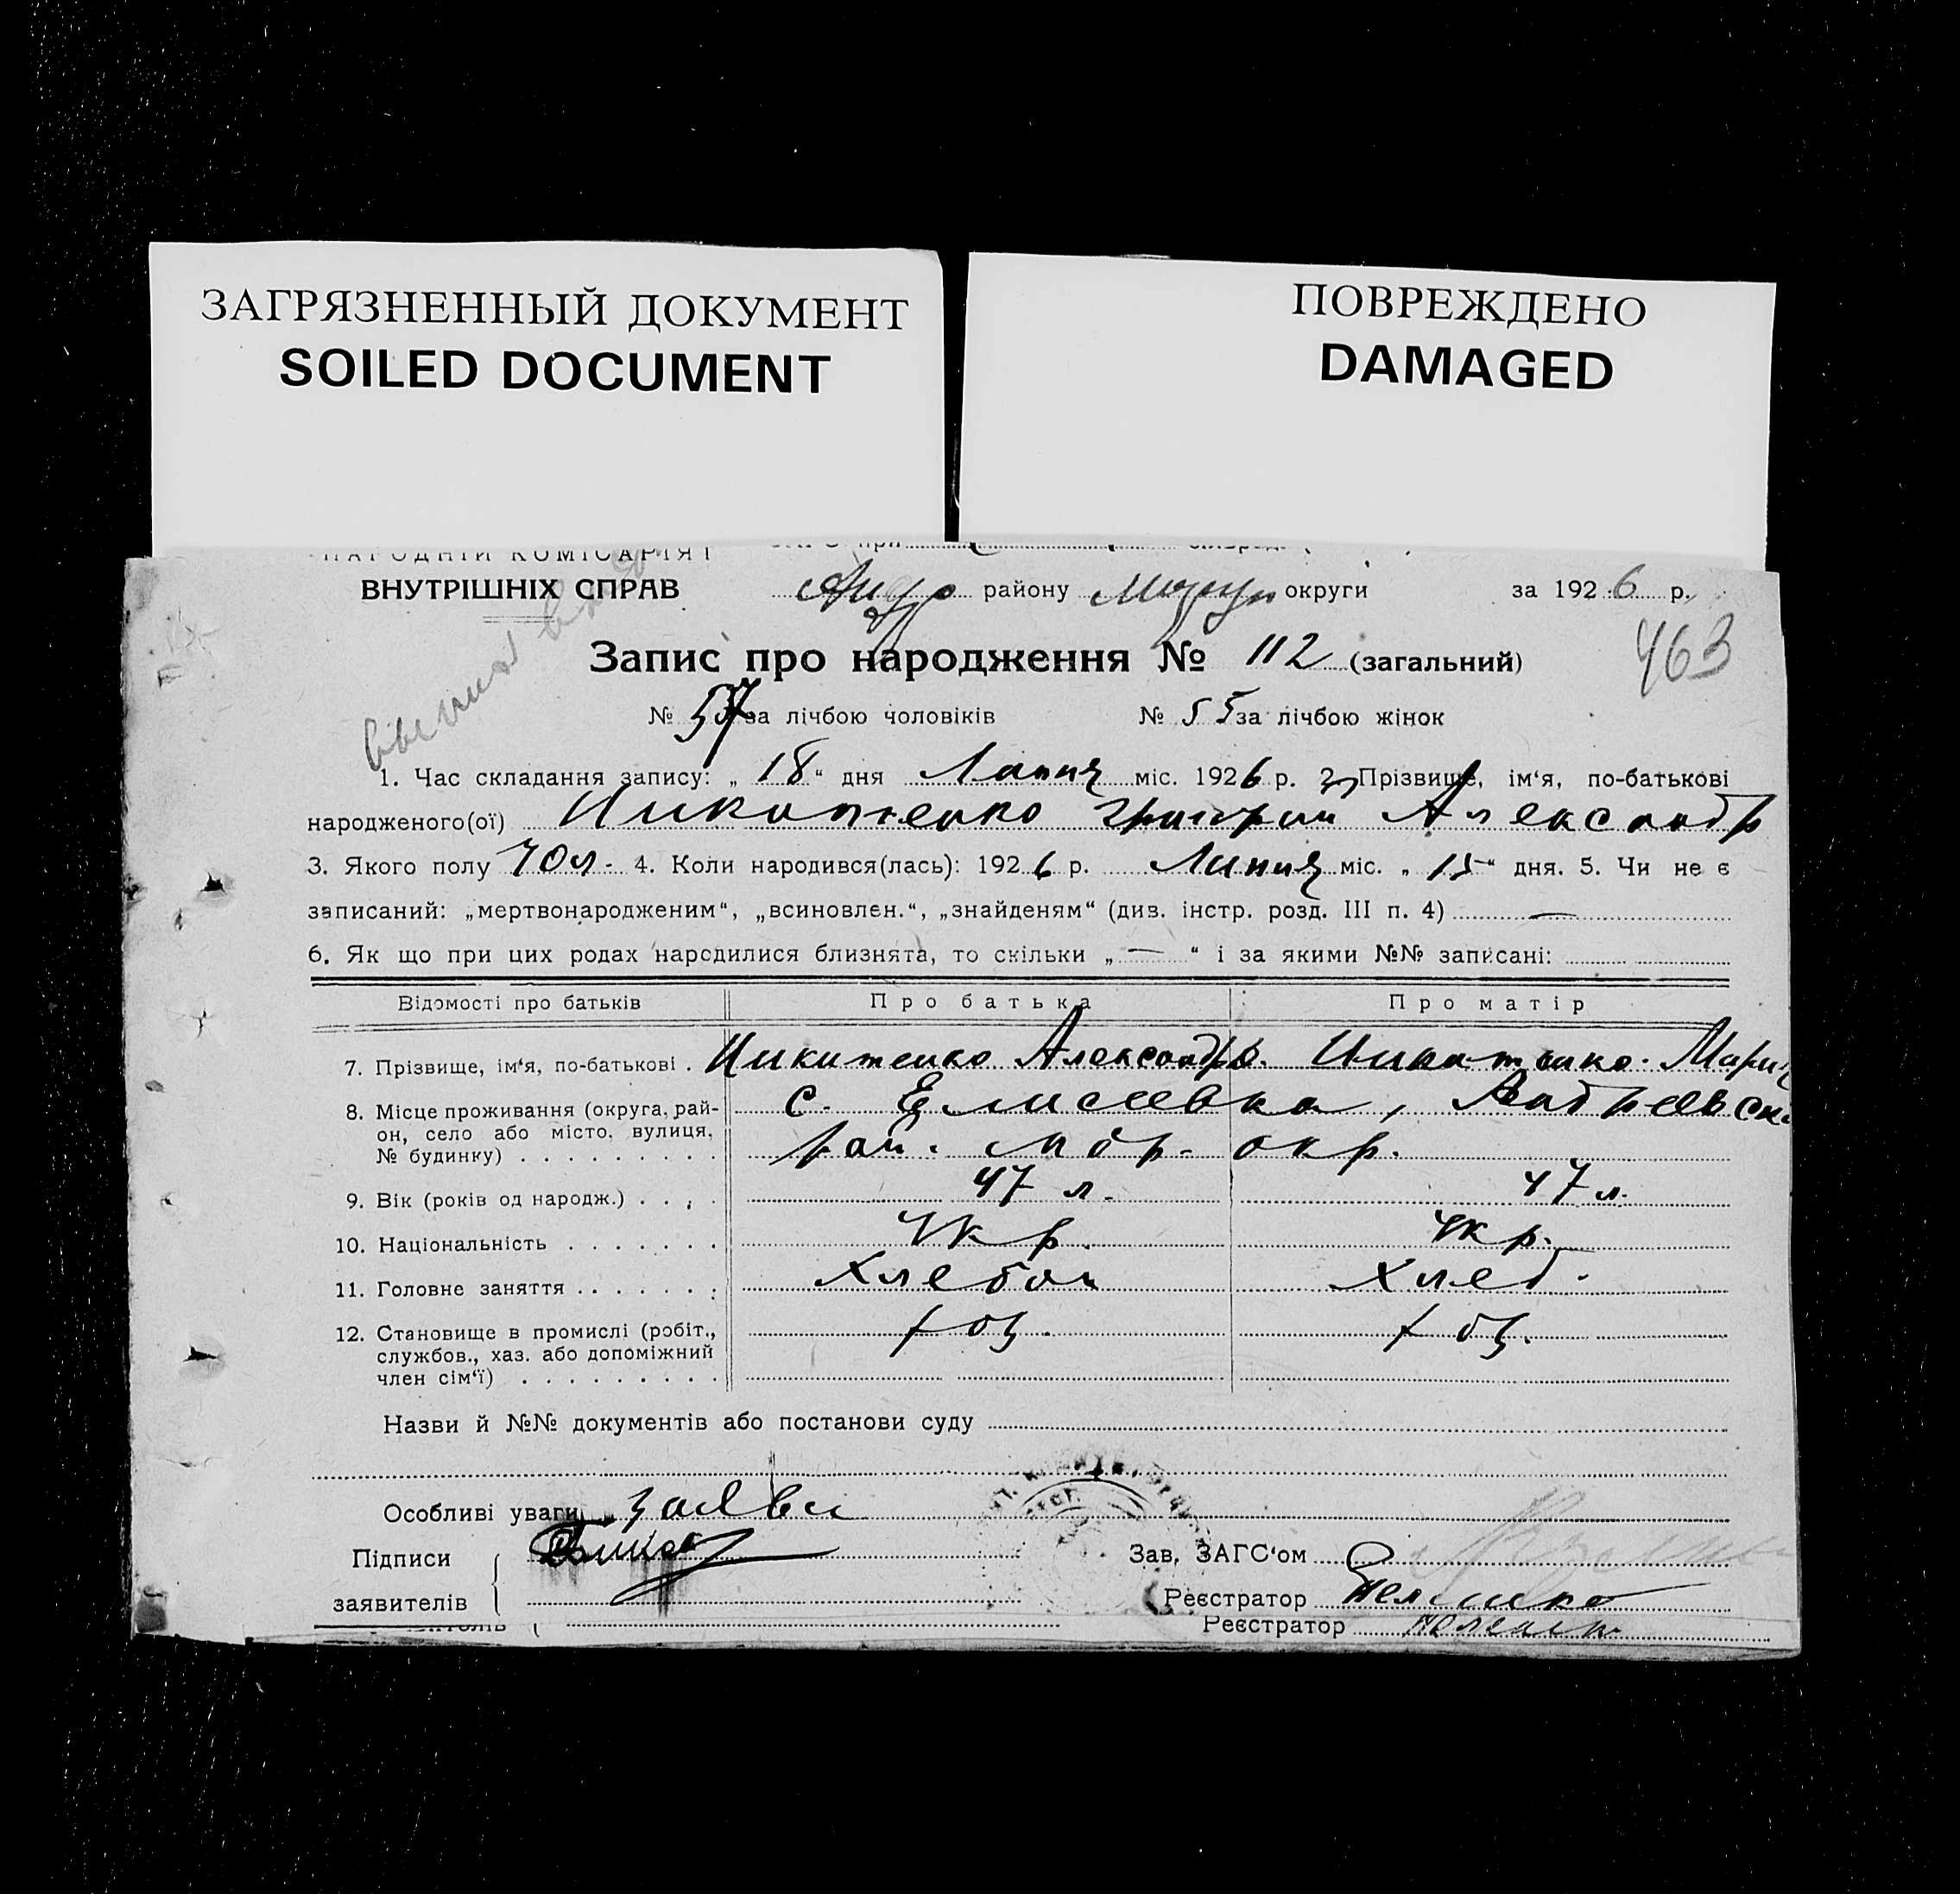 ЗАГРЯЗНЕННЫЙ ДОКУМЕНТ
SOILED DOCUMENT
ПОВРЕЖДЕНО
DAMAGED
НАРОДНІЙ КОМІСАРІЯТ
ВНУТРІШНІХ СПРАВ
Андр району округи за 1926 р.
Запис про народження № 112 (загальний)
463
№ 57 за лічбою чоловіків № 55 за лічбою жінок
1. Час складання запису: „18“ дня Липня міс. 1926 р. 2. Прізвище, ім‘я, по-батькові
народженого(ої) Никитенко Григрий Александр
3. Якого полу чол. 4. Коли народився(лась): 1926 р. Липня міс. „15“ дня. 5. Чи не є
записаний: „мертвонародженим“, „всиновлен.“, „знайденям“ (див. інстр. розд. III п. 4) —
6. Як що при цих родах народилися близнята, то скільки „—“ і за якими №№ записані:
Відомості про батьків Про батька Про матір
7. Прізвище, ім‘я, по-батькові . Никитенко Александр. Никитенко Мария
8. Місце проживання (округа, рай-
он, село або місто, вулиця,
№ будинку) . . . . . . . . .
с. Елисеевка, Андреевск
рай. мар. окр.
9. Вік (років од народж.) . . . 47 л. 47 л.
10. Національність . . . . . . . Укр. Укр.
11. Головне заняття . . . . . . . Хлебоп Хлеб.
12. Становище в промислі (робіт.,
службов., хаз. або допоміжний
член сім‘ї) . . . . . . . . .
Назви й №№ документів або постанови суду
Особливі уваги заяви
Підписи
заявителів
Зав. ЗАГС‘ом
Реєстратор
Реєстратор